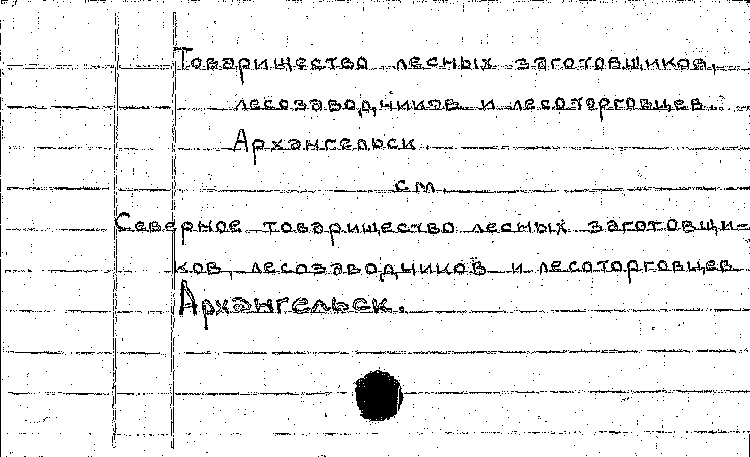 Товарищество лесных заготовщиков,
лесозаводчиков и лесоторговцев.
Архангельск.
см.
Северное товарищество лесных заготовщи-
ков, лесозаводчиков и лесоторговцев
Архангельск.